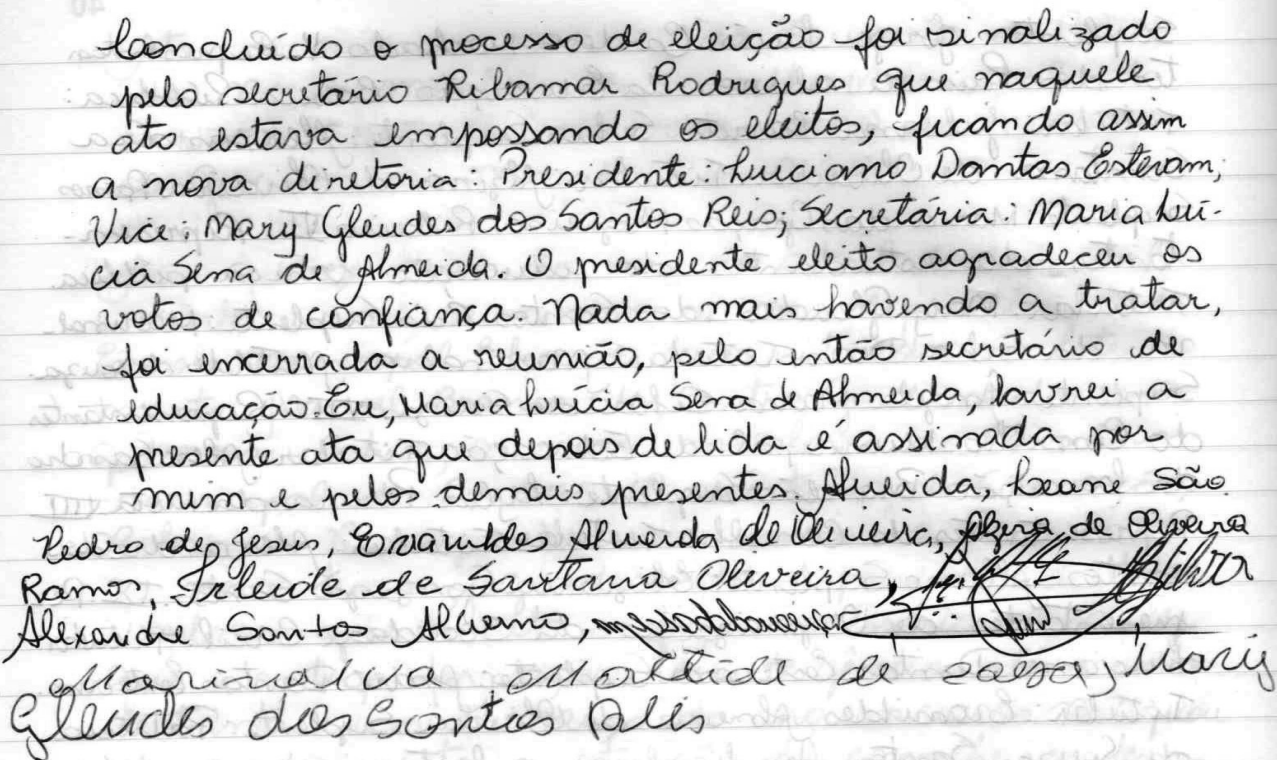 Concluído o processo de eleição foi sinalizado
pelo secretário Ribamar Rodrigues que naquele
ato estava empossando os eleitos, ficando assim
a nova diretoria: Presidente: Luciano Dantas Estevam;
Vice: Mary Gleudes dos Santos Reis; Secretária: Maria Lú-
cia Sena de Almeida. O presidente eleito agradeceu os
votos de confiança. Nada mais havendo a tratar,
foi encerrada a reunião, pelo então secretário de
educação. Eu, Maria Lúcia Sena de Almeida, lavrei a
presente ata que depois de lida é assinada por
mim e pelos demais presentes. Almeida, Leane São
Pedro de Jesus, Almeida de Oliveira, de Oliveira
Ramos, Irleide de Santana Oliveira,
Alexandre Santos
Marinalva Matilde de Mary
Gleudes dos Santos Reis